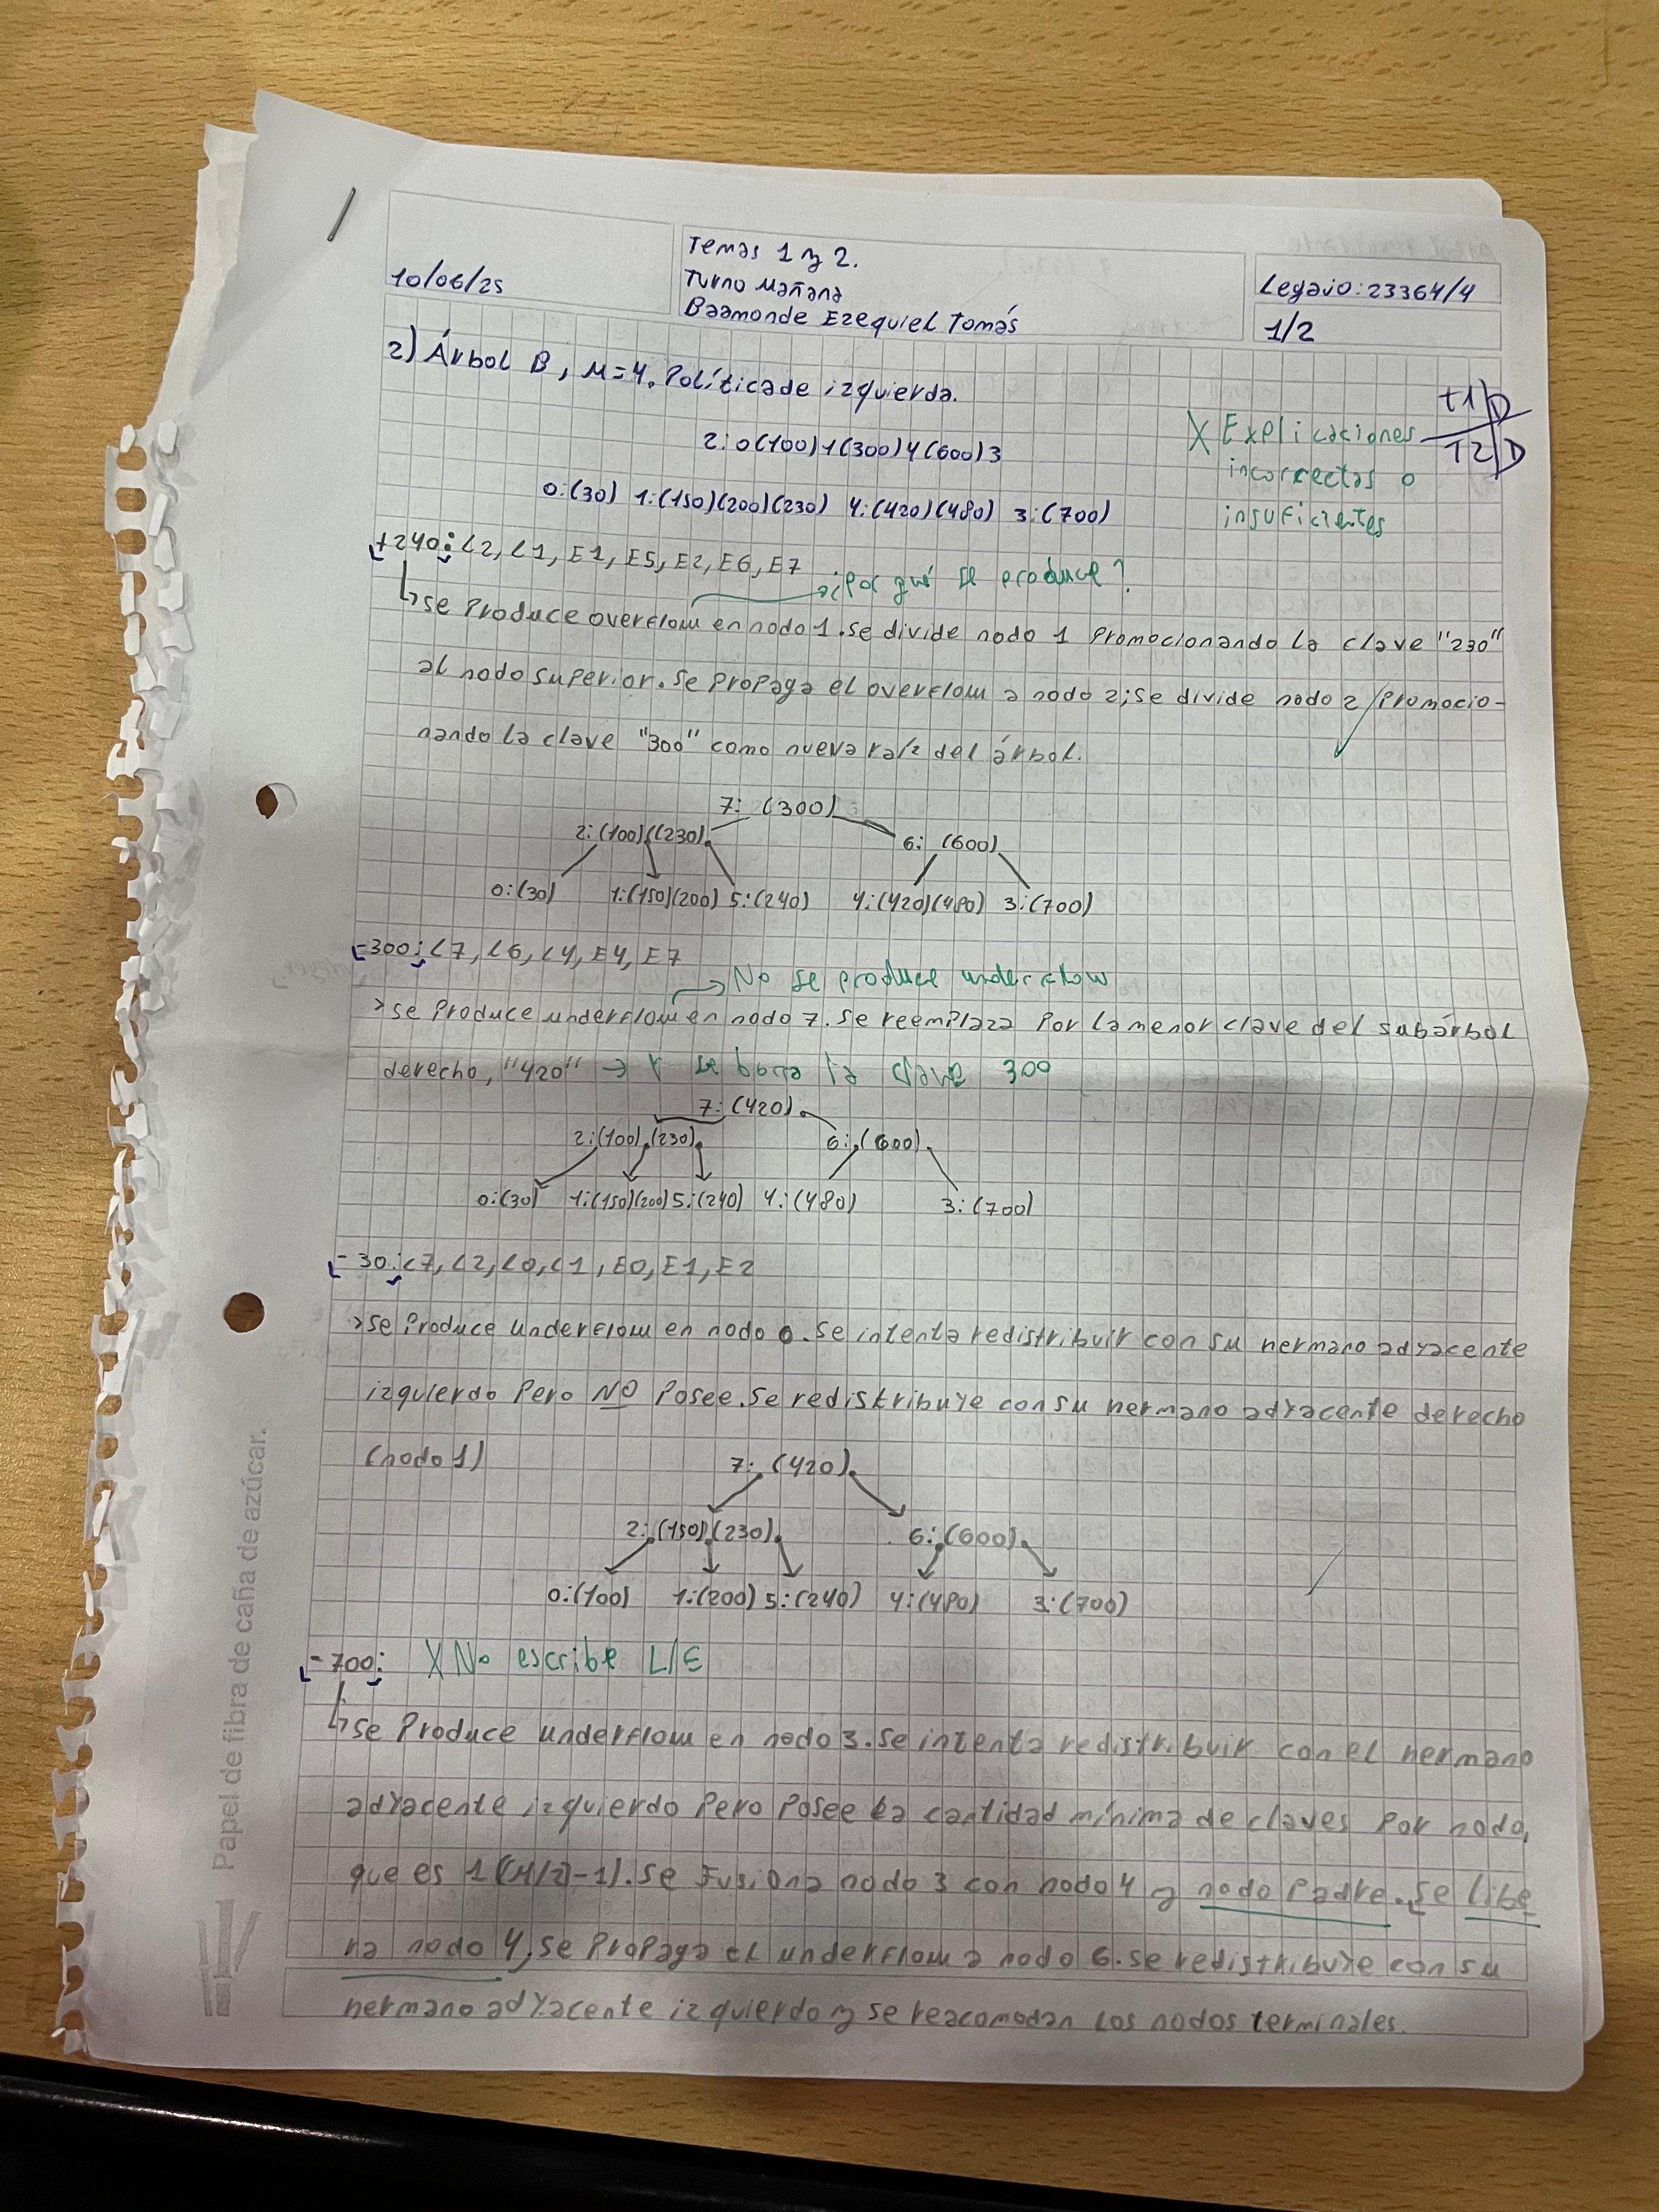 10/06/25
Temas 1 y 2.
Turno Mañana
Baamonde Ezequiel Tomás
Legajo: 23364/4
1/2
2) Árbol B, M=4. Política de izquierda.
t1/D
T2/D
X Explicaciones
incorrectas o
insuficientes
2: 0(100)1(300)4(600)3
0:(30) 1:(150)(200)(230) 4:(420)(480) 3:(700)
+240: L2, L1, E1, E5, E2, E6, E7
¿Por qué se produce?
↳ se produce overflow en nodo 1. se divide nodo 1 promocionando la clave "230"
al nodo superior. se propaga el overflow a nodo 2; se divide nodo 2 promocio-
nando la clave "300" como nueva raíz del árbol.
7: (300)
2: (100)(230) 6: (600)
0:(30) 1:(150)(200) 5:(240) 4:(420)(480) 3:(700)
-300: L7, L6, L4, E4, E7
→ No se produce underflow
> se produce underflow en nodo 7. se reemplaza por la menor clave del subárbol
derecho, "420" → Y se borra la clave 300
7: (420)
2:(100)(230) 6:(600)
0:(30) 1:(150)(200) 5:(240) 4:(480) 3:(700)
-30: L7, L2, L0, L1, E0, E1, E2
> se produce underflow en nodo 0. se intenta redistribuir con su hermano adyacente
izquierdo pero NO posee. se redistribuye con su hermano adyacente derecho
(nodo 1)
7: (420)
2: (150)(230) 6: (600)
0:(100) 1:(200) 5:(240) 4:(480) 3:(700)
-700: X No escribe L/E
↳ se produce underflow en nodo 3. se intenta redistribuir con el hermano
adyacente izquierdo pero posee la cantidad mínima de claves por nodo,
que es 1 ((M/2)-1). se fusiona nodo 3 con nodo 4 y nodo padre. se libe
ra nodo 4, se propaga el underflow a nodo 6. se redistribuye con su
hermano adyacente izquierdo y se reacomodan los nodos terminales.
Papel de fibra de caña de azúcar.